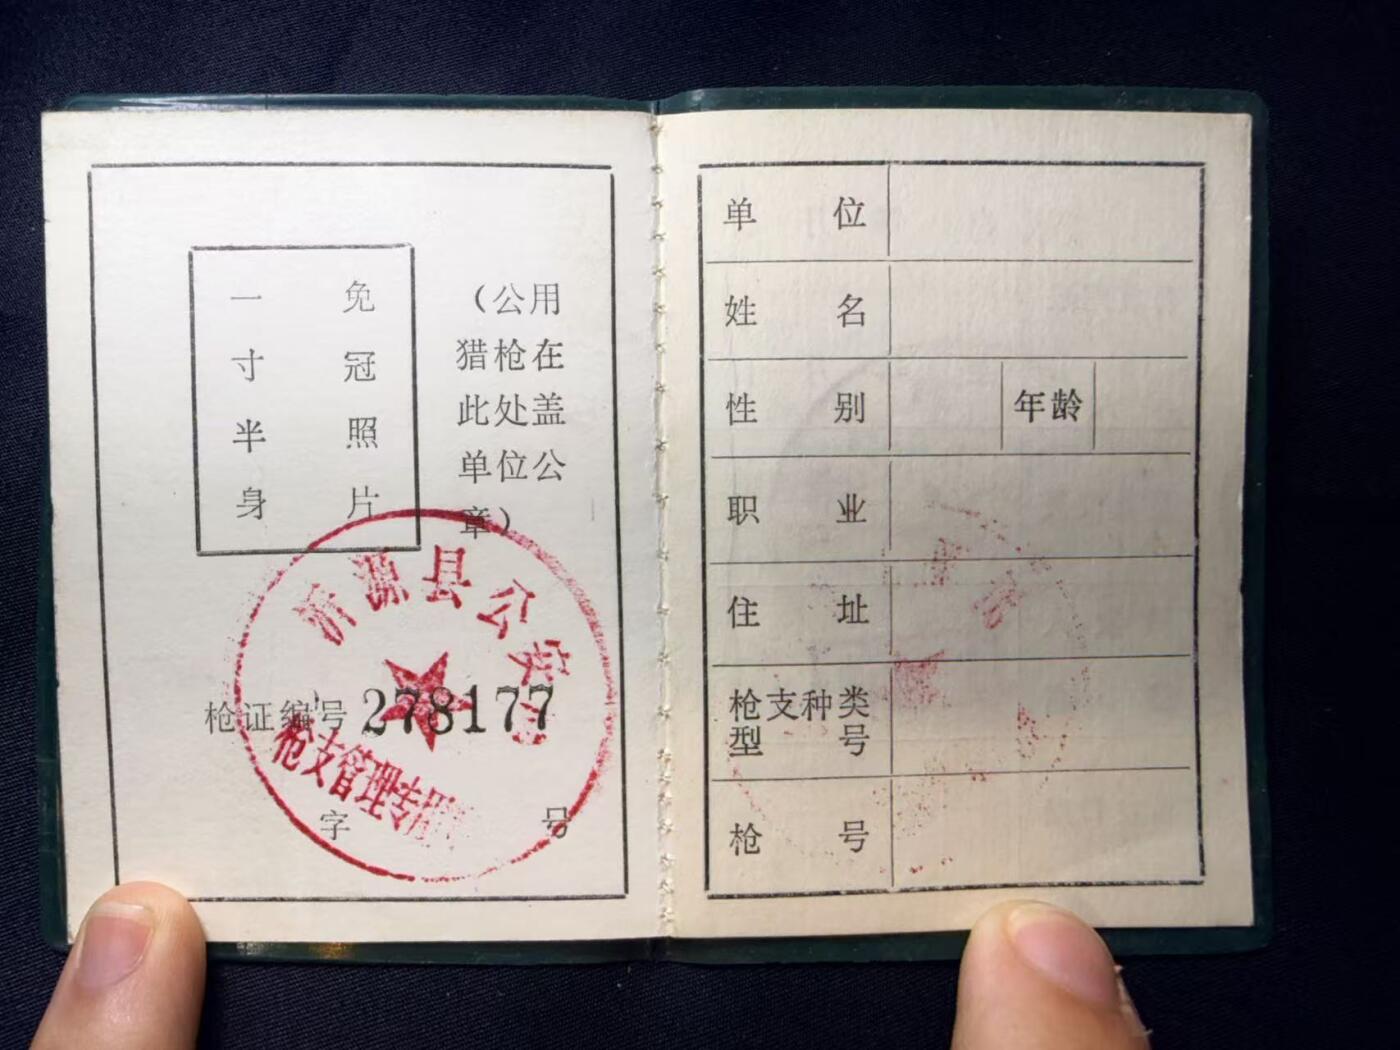 免冠照片
一寸半身
（公用
猎枪在
此处盖
单位公
章）
沂源县公安局
枪支管理专用
枪证编号 278177
字 号
单位
姓名
性别 年龄
职业
住址
枪支种类
型号
枪号